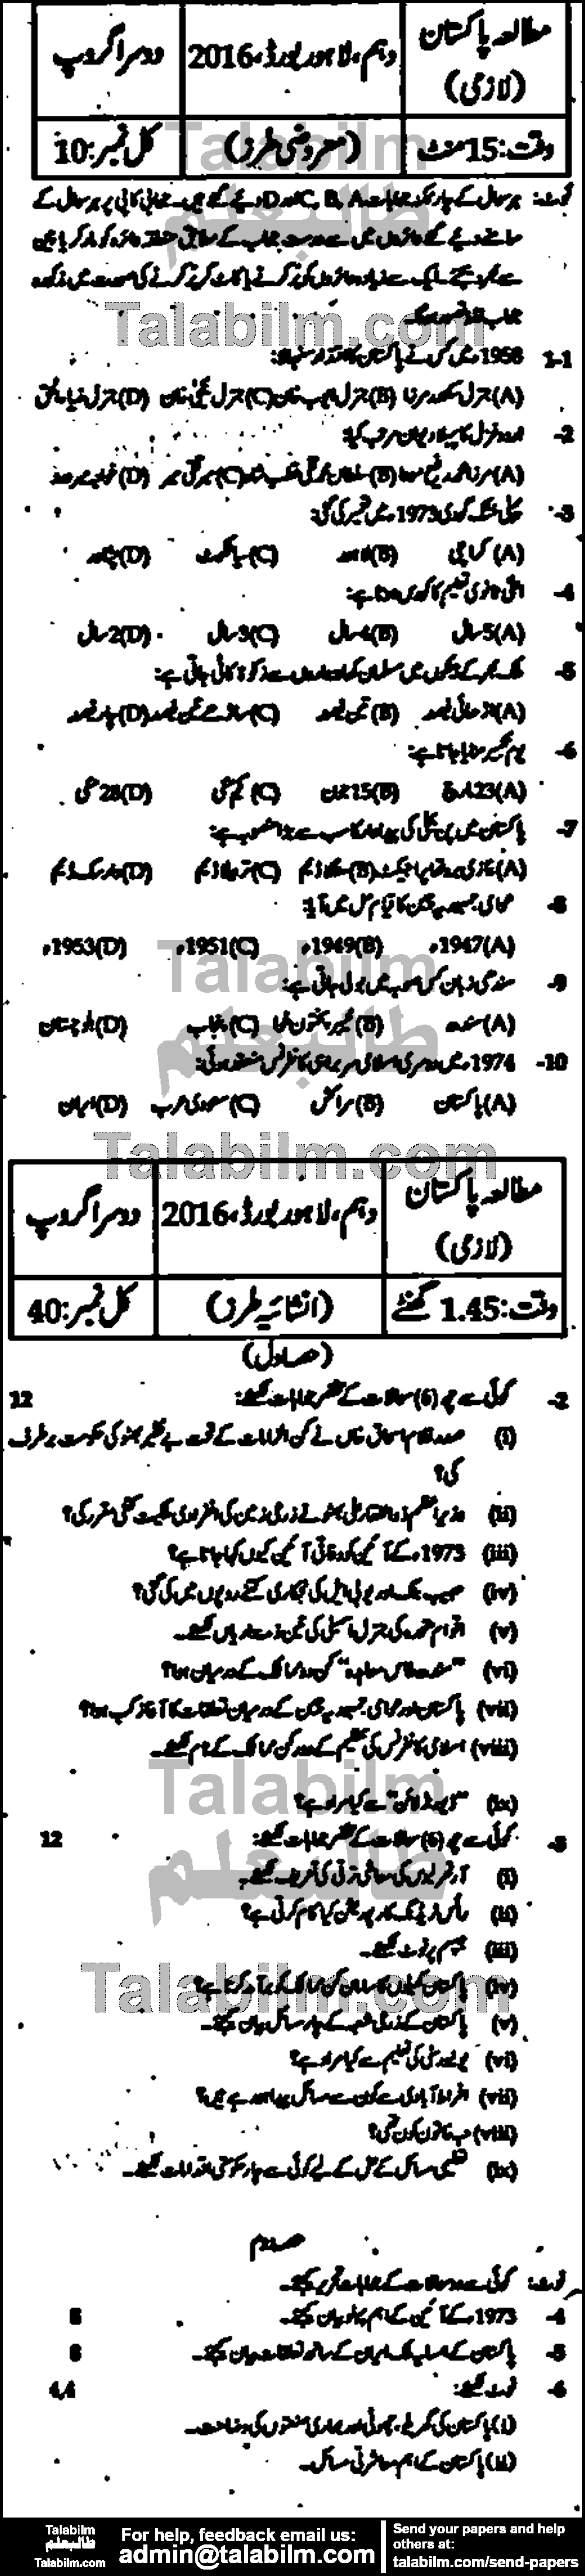 مطالعہ پاکستان (لازمی)
دہم، لاہور بورڈ، 2016
دوسرا گروپ
وقت: 15 منٹ
(معروضی طرز)
کل نمبر: 10
Talabilm
طالبعلم
Talabilm.com
نوٹ: ہر سوال کے چار ممکنہ جوابات A، B، C اور D دیے گئے ہیں۔ جوابی کاپی پر ہر سوال کے
سامنے دیے گئے دائروں میں سے درست جواب کے مطابق متعلقہ دائرہ کو مارکر یا پین
سے بھر دیجئے۔ ایک سے زیادہ دائروں کو پُر کرنے یا کاٹ کر پُر کرنے کی صورت میں مذکورہ
جواب غلط تصور ہوگا۔
1-1 1958ء میں کس نے پاکستان کا اقتدار سنبھالا:
(A) جنرل سکندر مرزا (B) جنرل ایوب خان (C) جنرل یحییٰ خان (D) جنرل ضیاء الحق
2- اردو غزل کا پہلا دیوان مرتب کیا:
(A) مرزا محمد رفیع سودا (B) سلطان محمد قلی قطب شاہ (C) میر تقی میر (D) خواجہ میر درد
3- پہلی خشک گودی 1973ء میں تعمیر کی گئی:
(A) کراچی (B) لاہور (C) سیالکوٹ (D) پشاور
4- اعلیٰ ثانوی تعلیم کا کورس ہوتا ہے:
(A) 5 سال (B) 4 سال (C) 3 سال (D) 2 سال
5- ملک بھر کے بنکوں میں مسلمان کھاتہ داروں سے زکوٰۃ کاٹی جاتی ہے:
(A) اڑھائی فیصد (B) تین فیصد (C) ساڑھے تین فیصد (D) چار فیصد
6- یوم تکبیر منایا جاتا ہے:
(A) 23 مارچ (B) 15 جون (C) یکم مئی (D) 28 مئی
7- پاکستان میں پن بجلی کی پیداوار کا سب سے بڑا منصوبہ ہے:
(A) غازی بروتھا پراجیکٹ (B) منگلا ڈیم (C) تربیلا ڈیم (D) وارسک ڈیم
8- عوامی جمہوریہ چین کا قیام عمل میں آیا:
(A) 1947ء (B) 1949ء (C) 1951ء (D) 1953ء
Talabilm
9- سندھی زبان کس صوبہ میں بولی جاتی ہے:
(A) سندھ (B) خیبر پختون خوا (C) پنجاب (D) بلوچستان
طالبعلم
10- 1974ء میں دوسری اسلامی سربراہی کانفرنس منعقد ہوئی:
(A) پاکستان (B) مراکش (C) سعودی عرب (D) ایران
Talabilm.com
مطالعہ پاکستان (لازمی)
دہم، لاہور بورڈ، 2016
دوسرا گروپ
وقت: 1.45 گھنٹے
(انشائیہ طرز)
کل نمبر: 40
(حصہ اول)
2- کوئی سے چھ (6) سوالات کے مختصر جوابات لکھیے: 12
(i) صدر غلام اسحاق خاں نے کن الزامات کے تحت بے نظیر بھٹو کی حکومت برطرف
کی؟
(ii) وزیراعظم ذوالفقار علی بھٹو نے زرعی زمین کی انفرادی ملکیت کتنی مقرر کی؟
(iii) 1973ء کے آئین کو وفاقی آئین کیوں کہا جاتا ہے؟
(iv) حبیب بنک اور یو بی ایل کی نجکاری کتنے روپوں میں کی گئی؟
(v) اقوام متحدہ کی جنرل اسمبلی کی تین ذمہ داریاں لکھیے۔
(vi) "سندھ طاس معاہدہ" کن دو ممالک کے درمیان ہوا؟
(vii) پاکستان اور عوامی جمہوریہ چین کے درمیان تعلقات کا آغاز کب ہوا؟
(viii) اسلامی کانفرنس کی تنظیم کے دو رکن ممالک کے نام لکھیے۔
Talabilm
(ix) "ڈیورنڈ لائن" سے کیا مراد ہے؟
3- کوئی سے چھ (6) سوالات کے مختصر جوابات لکھیے: 12
طالبعلم
(i) آرتھر لیوس کی معاشی ترقی کی تعریف لکھیے۔
(ii) رائس ٹریڈنگ کارپوریشن کیا کام کرتی ہے؟
(iii) جپسم پر نوٹ لکھیے۔
Talabilm.com
(iv) پاکستان کھیلوں کا سامان کن ممالک کو برآمد کرتا ہے؟
(v) پاکستان کے زرعی شعبہ کے چار مسائل بیان کیجئے۔
(vi) یونیورسٹی کی تعلیم سے کیا مراد ہے؟
(vii) افراط آبادی سے کون سے مسائل پیدا ہو رہے ہیں؟
(viii) حبہ خاتون کون تھی؟
(ix) تعلیمی مسائل کے حل کے لیے کوئی سے چار حکومتی اقدامات لکھیے۔
حصہ دوم
نوٹ: کوئی سے دو سوالات کے جوابات تحریر کیجئے۔
4- 1973ء کے آئین کے اہم پہلو بیان کیجئے۔ 8
5- پاکستان کے ہمسایہ ملک ایران کے ساتھ تعلقات بیان کیجئے۔ 8
6- نوٹ لکھیے: 4,4
(i) پاکستان کی گھریلو، چھوٹی اور بھاری صنعتوں کی وضاحت۔
(ii) پاکستان کے اہم معاشرتی مسائل۔
Talabilm
طالبعلم
Talabilm.com
For help, feedback email us:
admin@talabilm.com
Send your papers and help
others at:
talabilm.com/send-papers